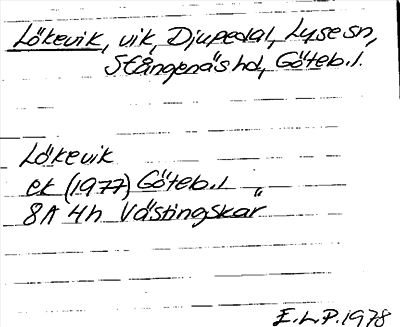 Lökevik, vik, Djupedal, Lyse sn,
Stångenäs hd, Göteb. l.
Lökevik
ek (1977) Göteb. l "
8A 4h Västingskär
E.L.P. 1978